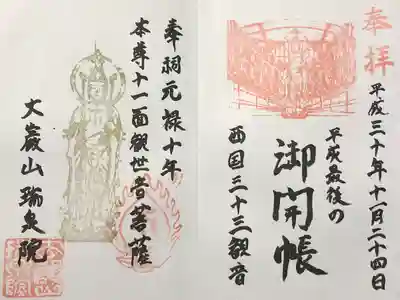 奉拝
平成三十年十一月二十四日
平成最後の
御開帳
西国三十三観音
奉祠元禄十年
本尊十一面観世音菩薩
大巖山瑞泉院